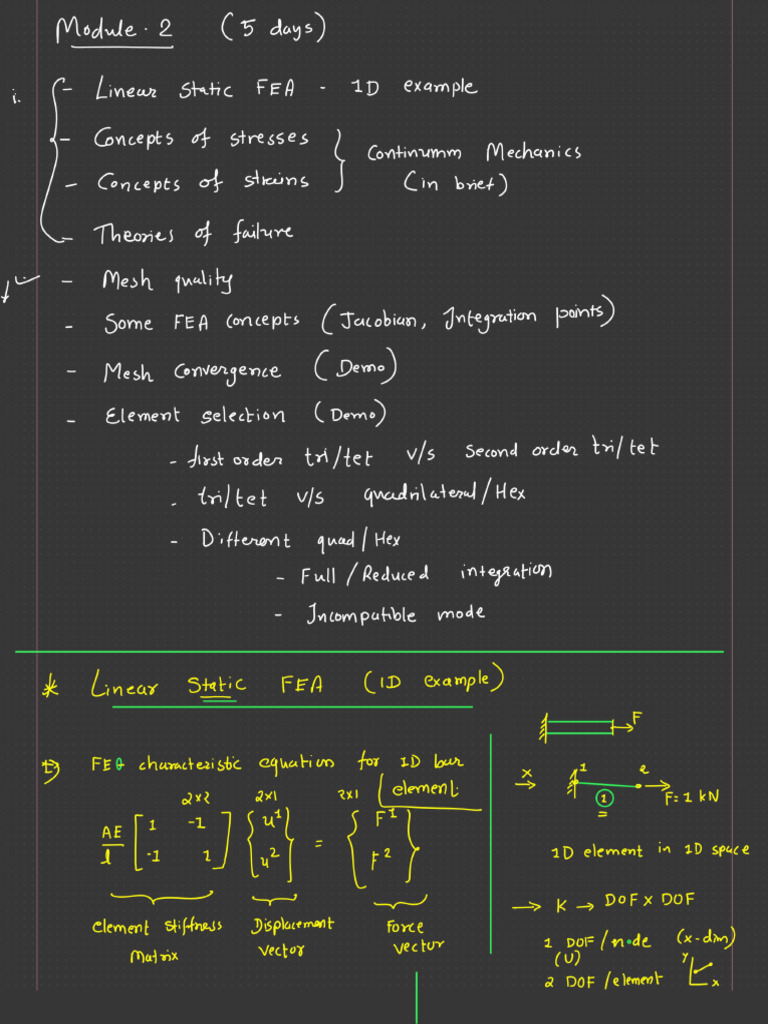 Module-2 (5 days)
i. - Linear static FEA - 1D example
- Concepts of stresses
- Concepts of strains
Continumm Mechanics
(in brief)
- Theories of failure
- Mesh quality
- Some FEA concepts (Jacobian, Integration points)
- Mesh convergence (Demo)
- Element selection (Demo)
- first order tri/tet v/s second order tri/tet
- tri/tet v/s quadrilateral/Hex
- Different quad/Hex
- Full/Reduced integration
- Incompatible mode
* Linear Static FEA (1D example)
F
1) FEA characteristic equation for 1D bar
element
x → 1 2 F=1 kN
1
=
2x2 2x1 2x1
AE/l [1 -1] {u1} = {F1}
[-1 1] {u2} {F2}
1D element in 1D space
Element stiffness
Matrix
Displacement
vector
Force
vector
→ K → DOF x DOF
1 DOF/node (x-dim)
(U)
2 DOF/element
y
x